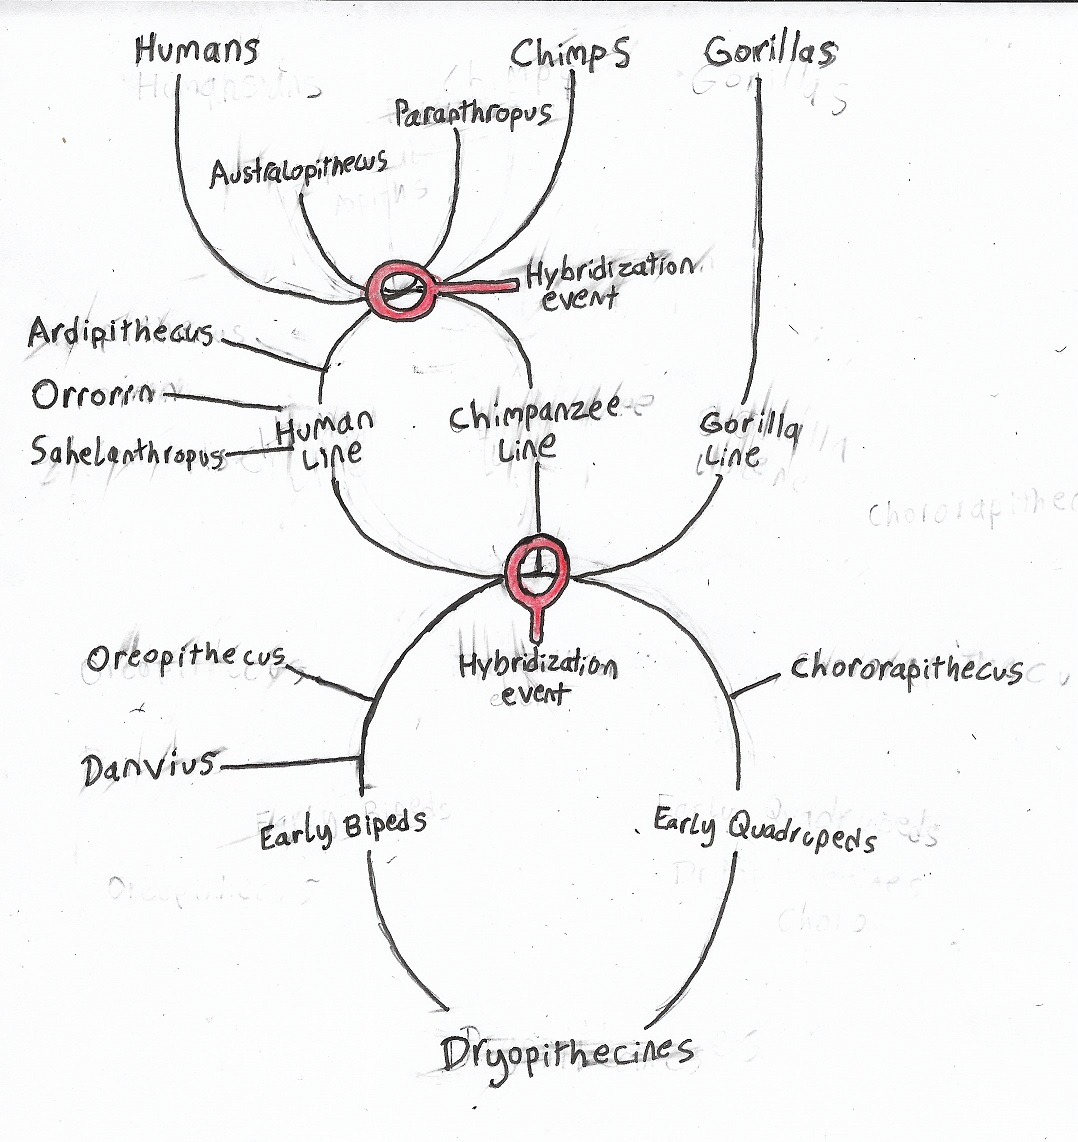 Humans
Chimps
Gorillas
Paranthropus
Australopithecus
Hybridization
event
Ardipithecus
Orrorin
Sahelanthropus
Human
Line
Chimpanzee
Line
Gorilla
Line
Chororapithec
Oreopithecus
Hybridization
event
Chororapithecus
Danvius
Early Bipeds
Early Quadrupeds
Dryopithecines